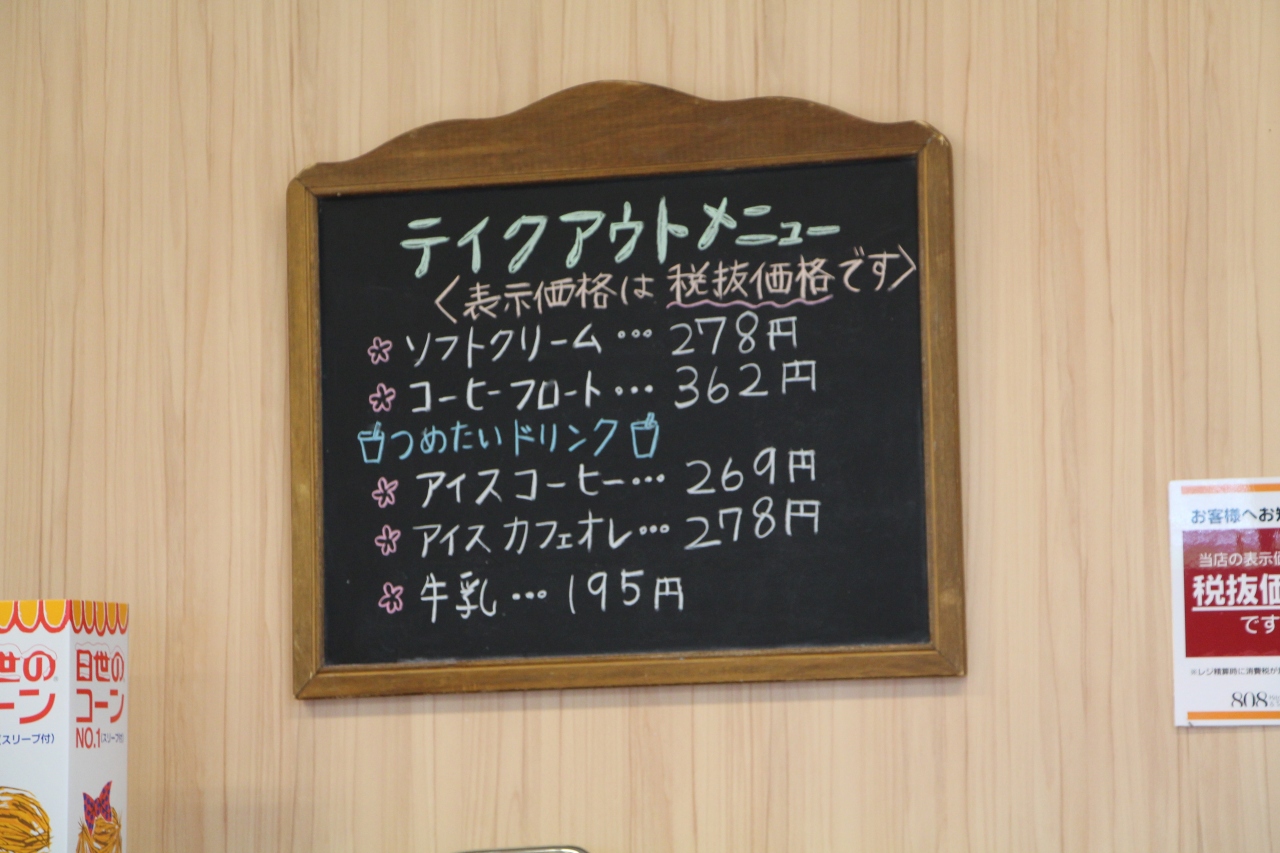 テイクアウトメニュー
〈表示価格は税抜価格です〉
ソフトクリーム…278円
コーヒーフロート…362円
つめたいドリンク
アイスコーヒー…269円
アイスカフェオレ…278円
牛乳…195円
世の
ーン
(スリーブ付)
日世の
コーン
NO.1(スリーブ付)
お客様へお知
当店の表示価
税抜価
です
※レジ精算時に消費税が
808